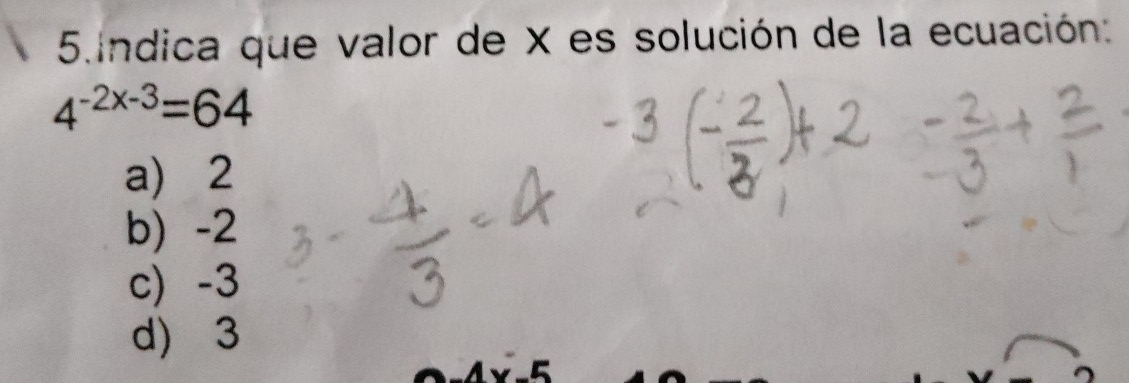 5.indica que valor de X es solución de la ecuación:
4^-2x-3=64
-3 (-2/3)+2 -2/-3 + 2/1
a) 2
b) -2
c) -3
d) 3
3 - 4/3 = 4
-4x-5